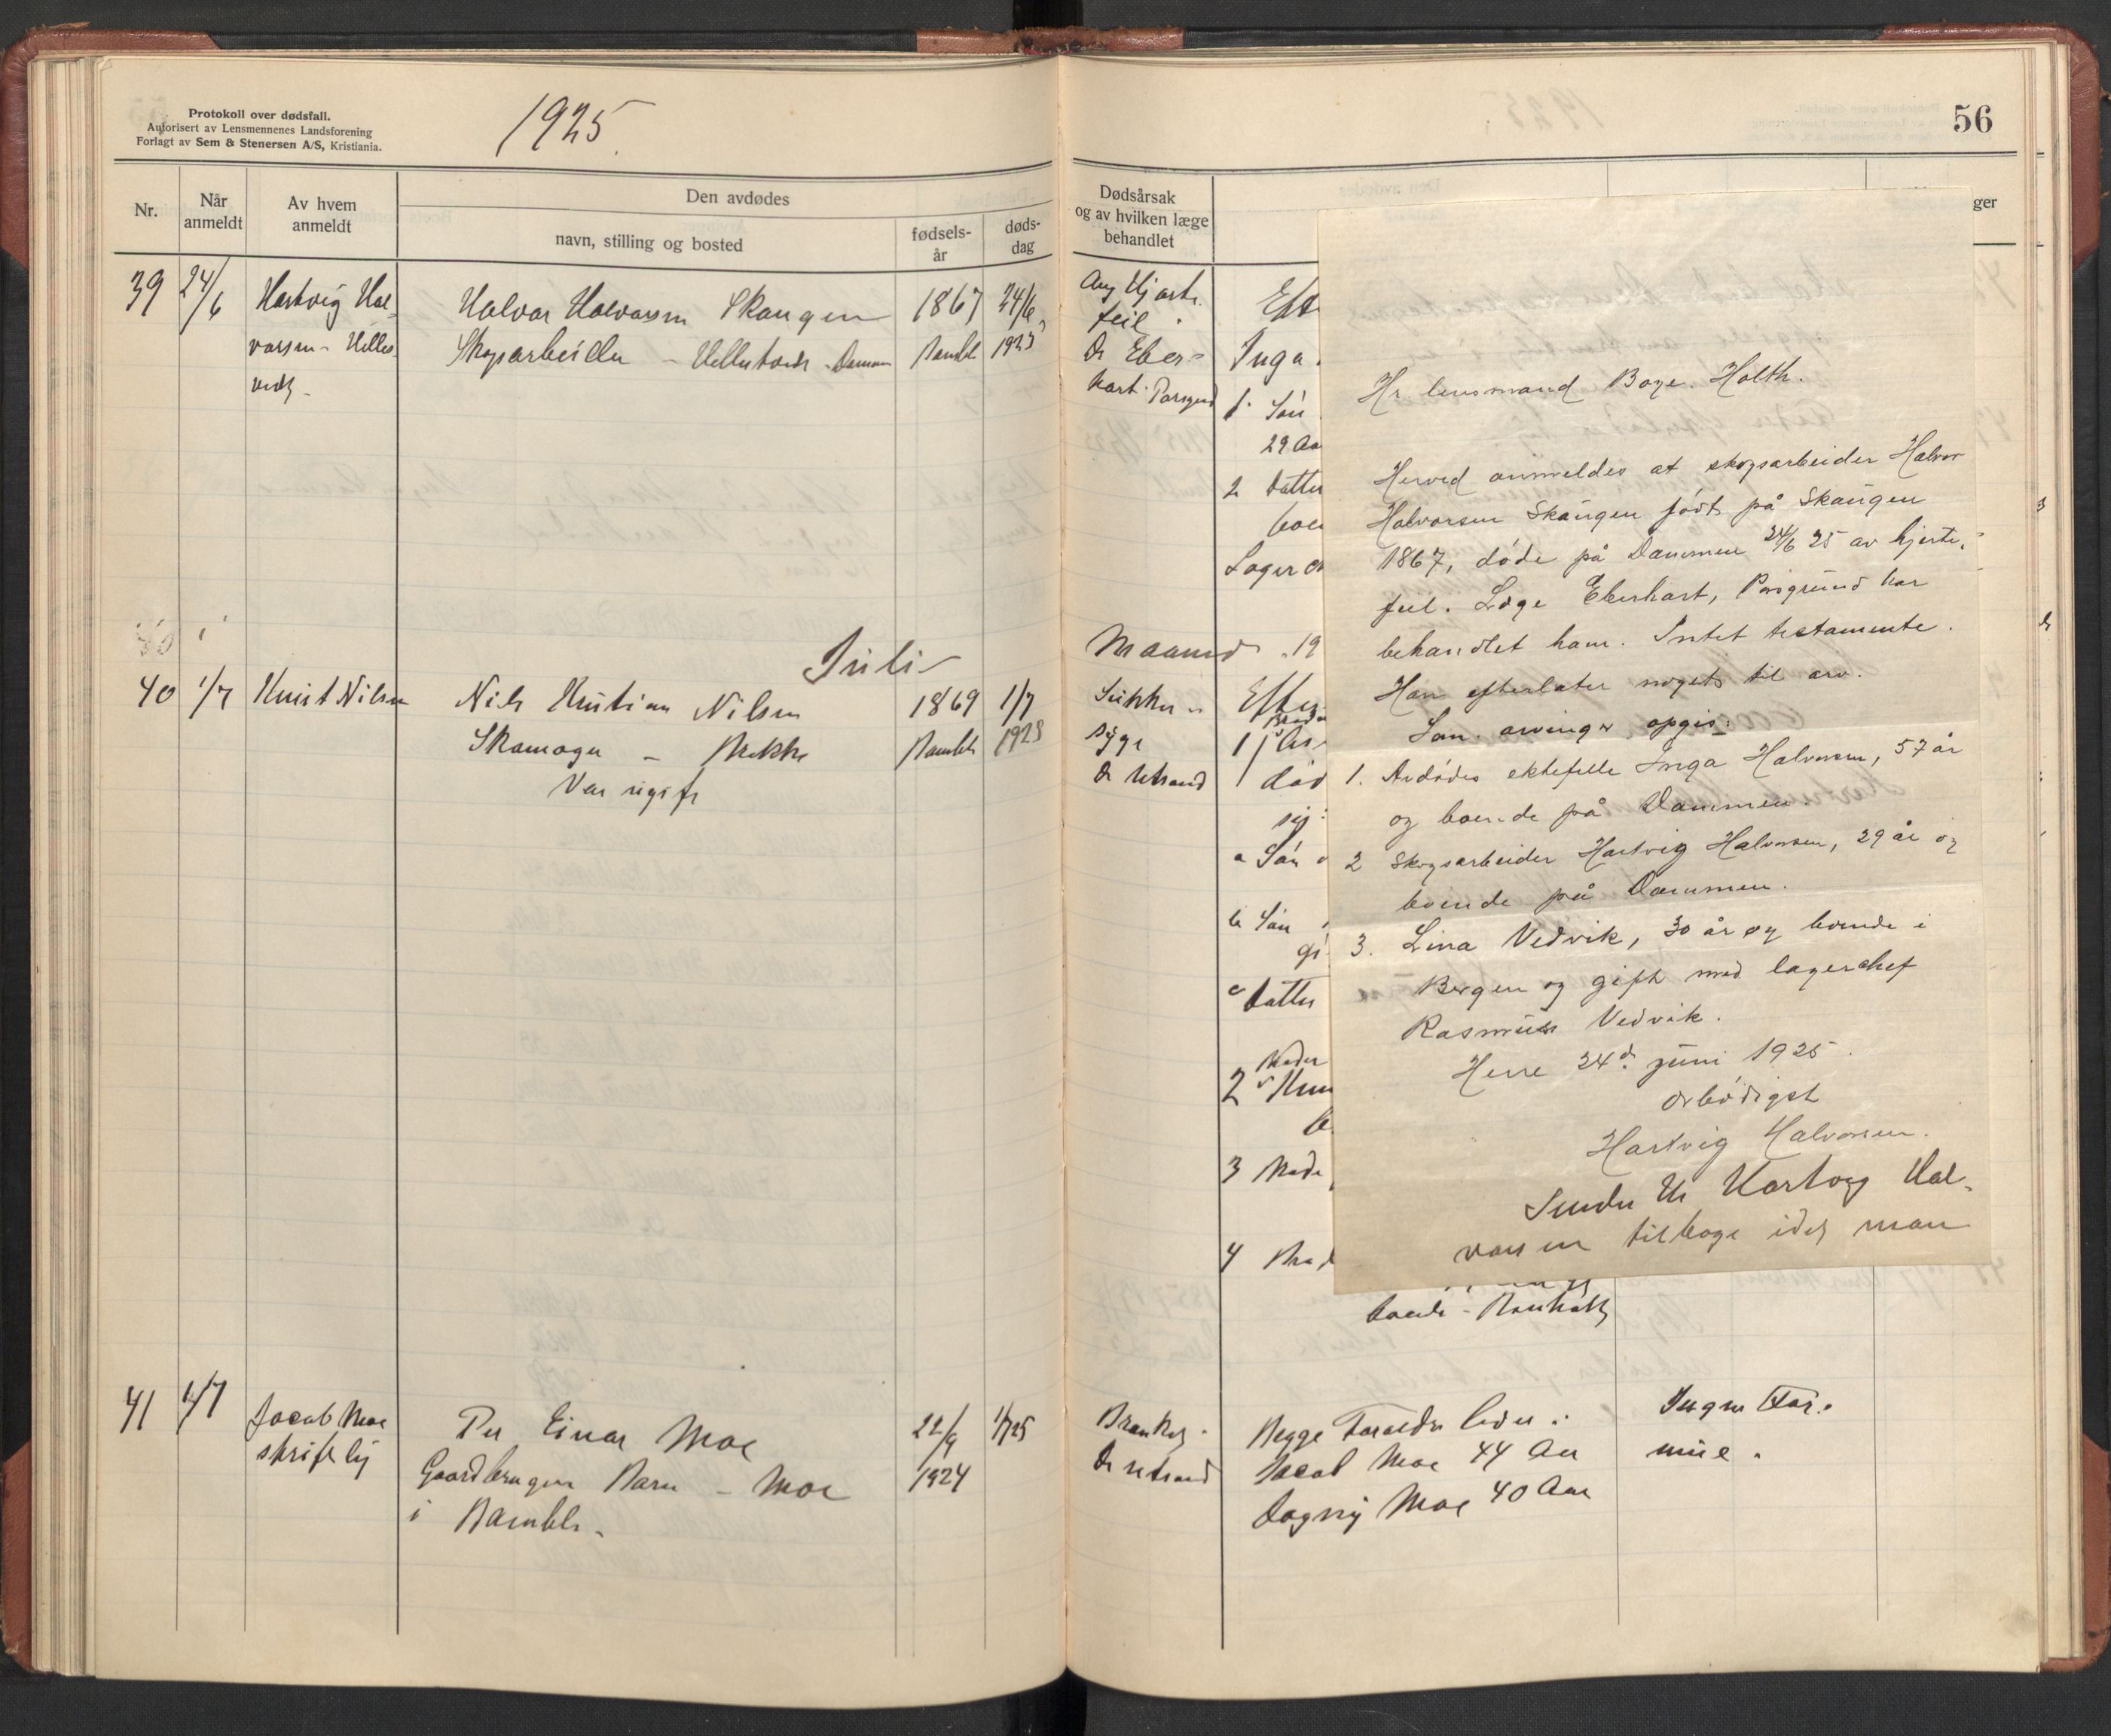 Protokoll over dødsfall.
Autorisert av Lensmennenes Landsforening
Forlagt av Sem & Stenersen A/S, Kristiania.
1925.
Nr.
Når
anmeldt
Av hvem
anmeldt
Den avdødes
navn, stilling og bosted
fødsels-
år
døds-
dag
39
24/6
Hartvig Hal-
vorsen - Helles-
vedt -
Halvor Halvorsen Skaugen
Skogsarbeider - Hellestvedt - Dammen
1867
Bamble
24/6
1925
Juli
40
1/7
Knut Nilsen
Nils Kristian Nilsen
Skomager - Brekke
Var ugift
1869
Bamble
1/7
1925
41
4/7
Jacob Moe
skriftlig
Per Einar Moe
Gaardbruger Barn - Moe
i Bamble -
22/9
1924
1/7 25
56
Dødsårsak
og av hvilken læge
behandlet
ger
Ang Hjerte-
feil.
Dr Eber-
hart. Porsgrund
Eft
Inga
1. Søn
29 Aa
2 Datter
boe
Lager
Maaned. 19
Sukker-
syge
Dr Utrand
Efter
Broder
1
død
a Søn
b Søn
gi
c Datter
Moder
2
3
4
boende - Rønholt
Brankes.
Dr Utrand
Begge Foreldre lever.
Jacob Moe 44 Aar
Dagny Moe 40 Aar
Ingen For-
mue.
Hr lensmand Boye. Holth.
Herved anmeldes at skogsarbeider Halvor
Halvorsen Skaugen født på Skaugen
1867, døde på Dammen 24/6 25 av hjerte-
feil. Læge Eberhart, Porsgrund har
behandlet ham. Intet testamente.
Han efterlater noget til arv.
Som arvinger opgis:
1. Avdødes ektefelle Inga Halvorsen, 57 år
og boende på Dammen.
2 Skogsarbeider Hartvig Halvorsen, 29 år og
boende på Dammen.
3. Lina Vedvik, 30 år og boende i
Bergen og gift med lagerchef
Rasmus Vedvik.
Herre 24d. juni 1925.
Ærbødigst
Hartvig Halvorsen.
Sendes Hr Hartvig Hal-
vorsen tilbage idet man